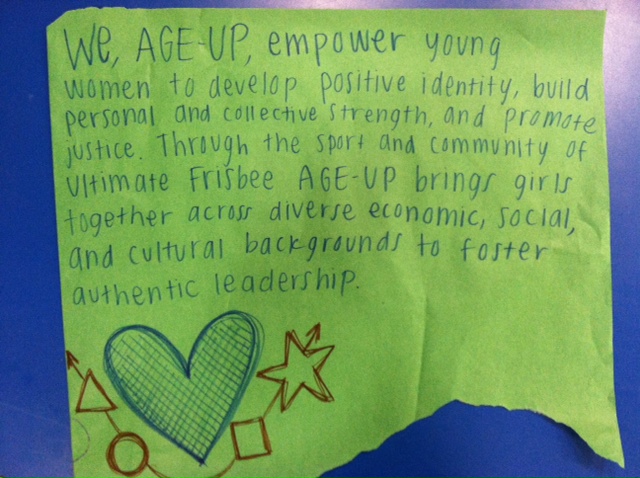 We, AGE-UP, empower young
women to develop positive identity, build
personal and collective strength, and promote
justice. Through the sport and community of
Ultimate Frisbee AGE-UP brings girls
together across diverse economic, social,
and cultural backgrounds to foster
authentic leadership.